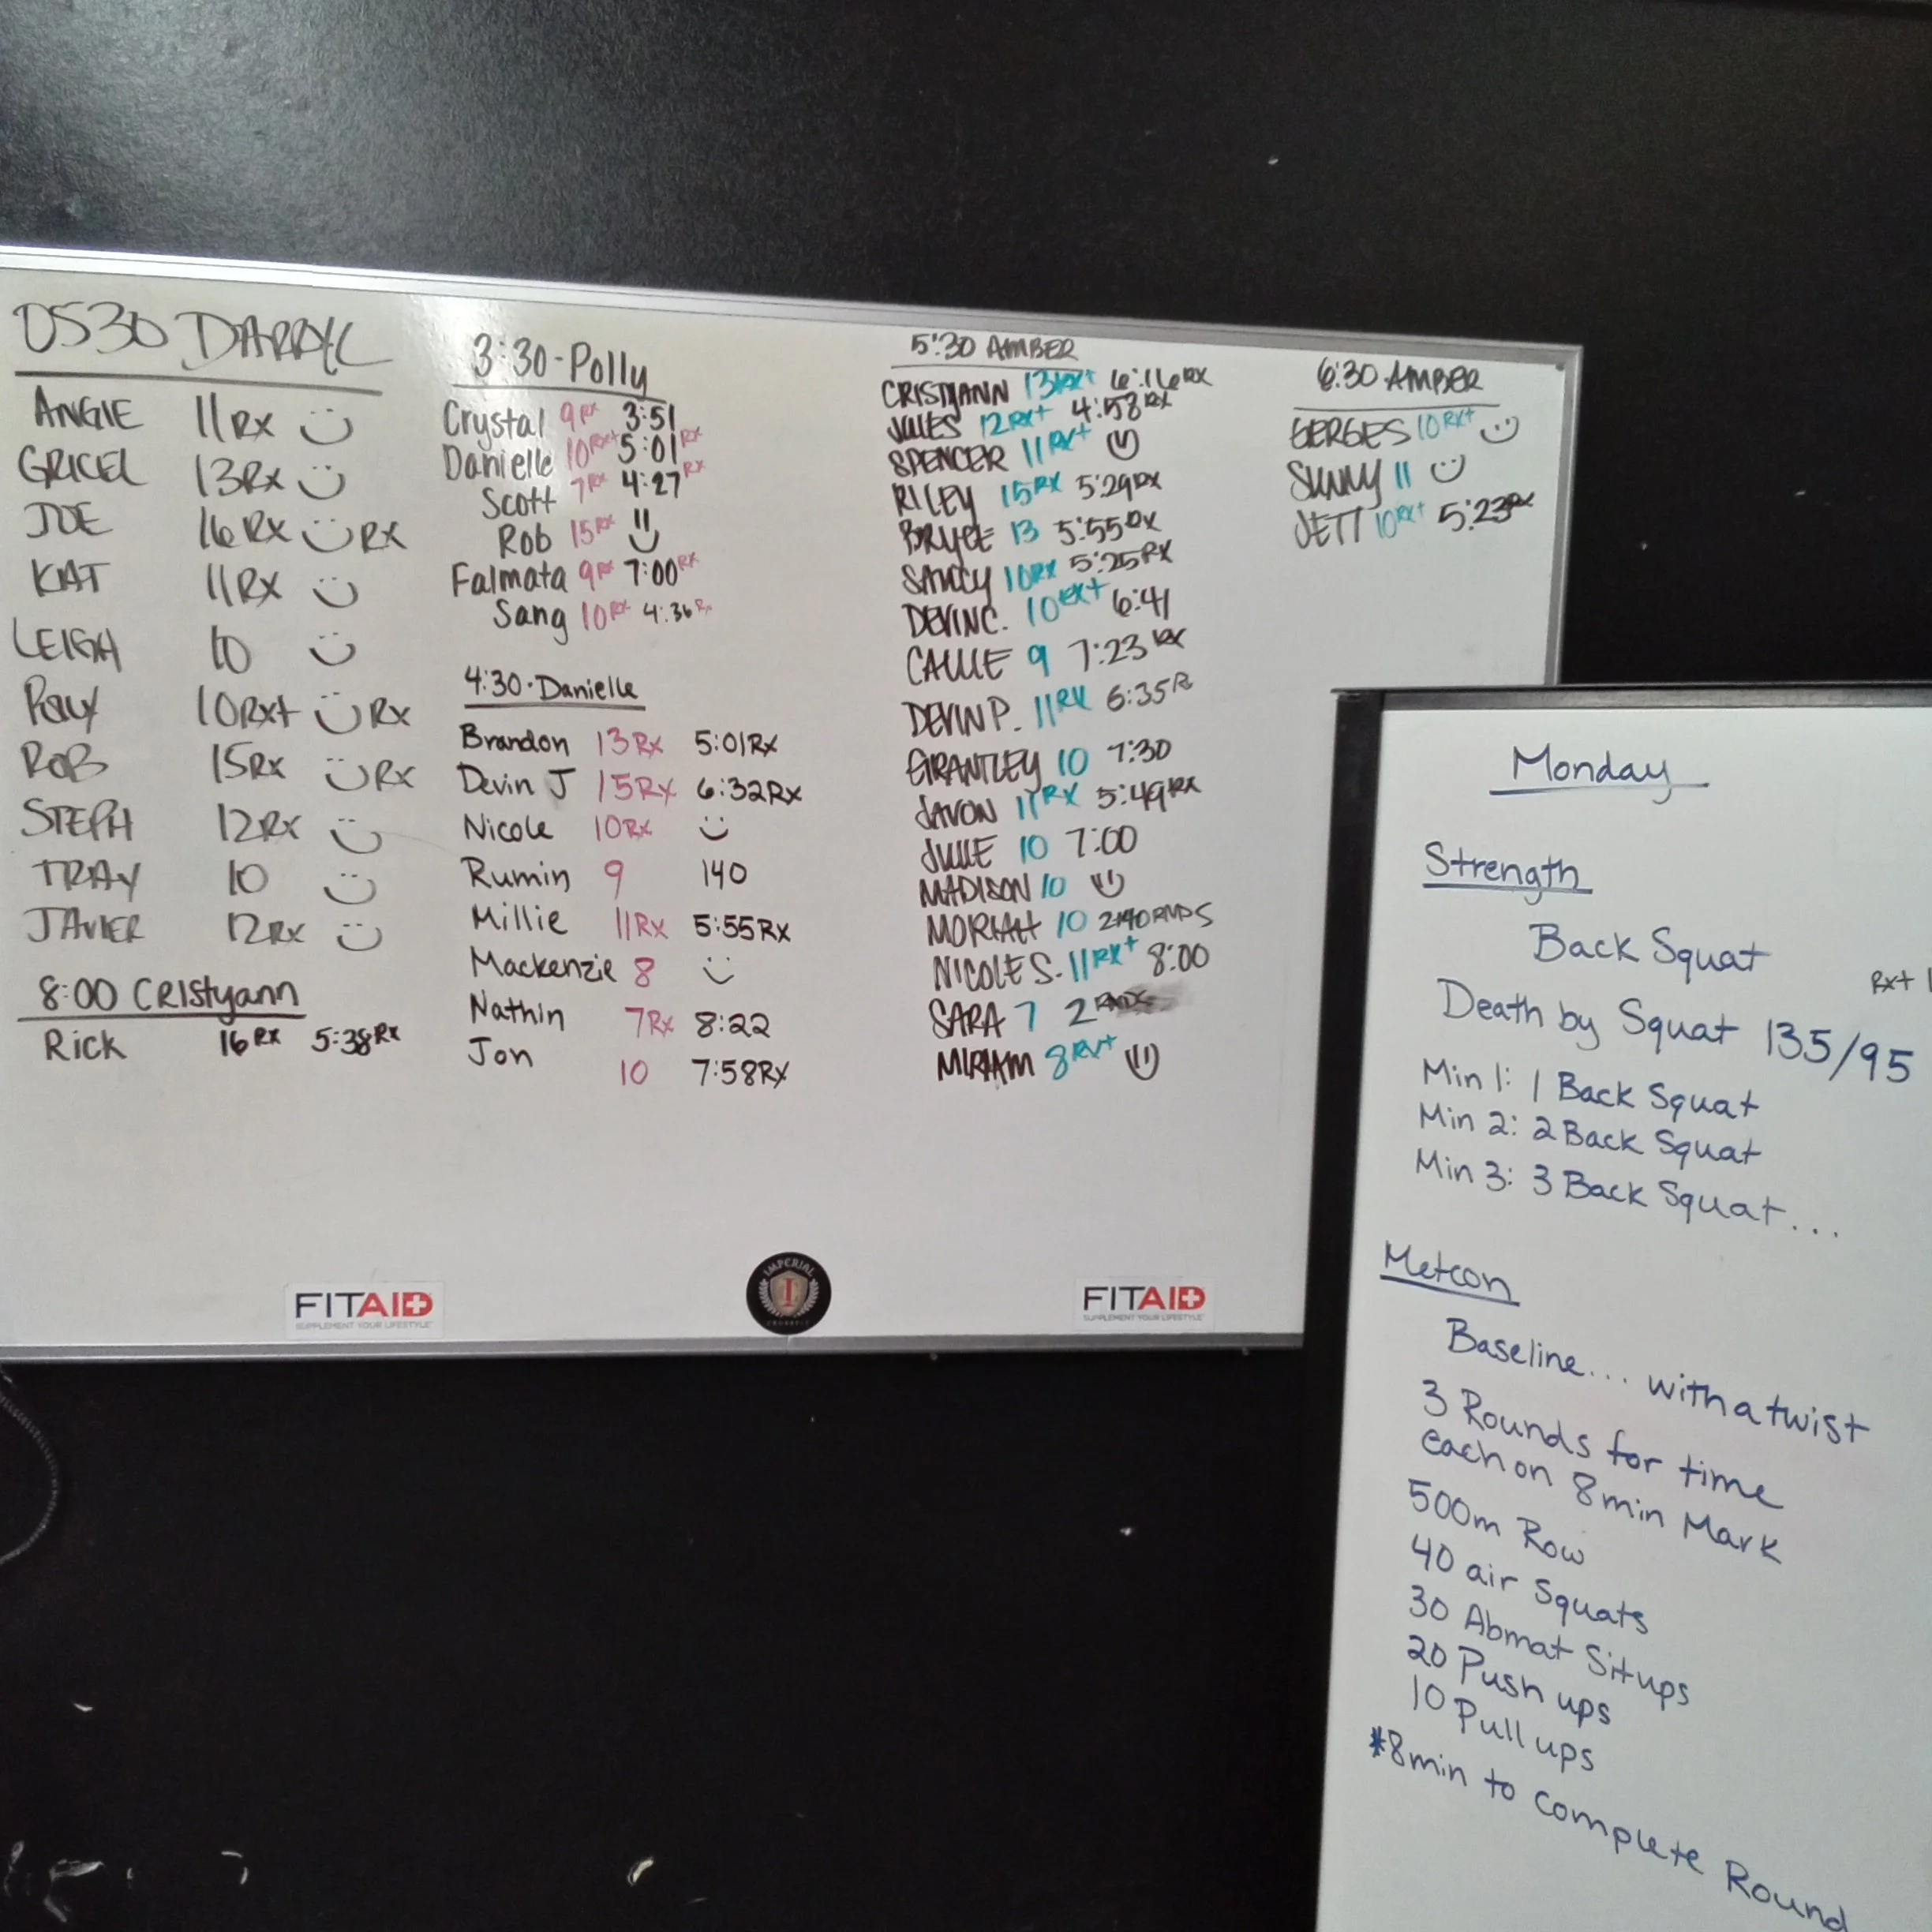 0530 DARRYL
ANGIE 11 RX
GRICEL 13 RX
JOE 16 RX RX
KAT 11 RX
LEIGH 10
POLLY 10 RX+ RX
ROB 15 RX RX
STEPH 12 RX
TRAY 10
JAVIER 12 RX
8:00 CRIStyann
Rick 16 RX 5:38 RX
3:30 - Polly
Crystal 9 RX 3:51
Danielle 10 RX+ 5:01 RX
Scott 7 RX 4:27 RX
Rob 15 RX
Falmata 9 RX 7:00 RX
Sang 10 RX 4:36 Rx
4:30 - Danielle
Brandon 13 Rx 5:01 Rx
Devin J 15 Rx 6:32 Rx
Nicole 10 Rx
Rumin 9 140
Millie 11 Rx 5:55 Rx
Mackenzie 8
Nathin 7 Rx 8:22
Jon 10 7:58 Rx
5:30 AMBER
CRISTYANN 13 RX+ 6:16 RX
JULES 12 RX+ 4:58 RX
SPENCER 11 RX+
RILEY 15 RX 5:29 RX
BRYCE 13 5:55 RX
10 RX 5:25 RX
DEVIN C. 10 RX+ 6:41
CALLIE 9 7:23 RX
DEVIN P. 11 RX 6:35 R
GRANTLEY 10 7:30
JAVON 11 RX 5:49 RX
JULIE 10 7:00
MADISON 10
MORIAH 10 RNDS
NICOLE S. 11 RX+ 8:00
SARA 7 2 RNDS
MIRIAM 8 RX+
6:30 AMBER
GERGES 10 RX+
SUNNY 11
JETT 10 RX+ 5:23 RX
FITAID
SUPPLEMENT YOUR LIFESTYLE
IMPERIAL
I
CROSSFIT
FITAID
SUPPLEMENT YOUR LIFESTYLE
Monday
Strength
Back Squat
Rx+ 1
Death by Squat 135/95
Min 1: 1 Back Squat
Min 2: 2 Back Squat
Min 3: 3 Back Squat...
Metcon
Baseline... with a twist
3 Rounds for time
each on 8 min Mark
500m Row
40 air Squats
30 Abmat Situps
20 Push ups
10 Pull ups
*8min to complete Round